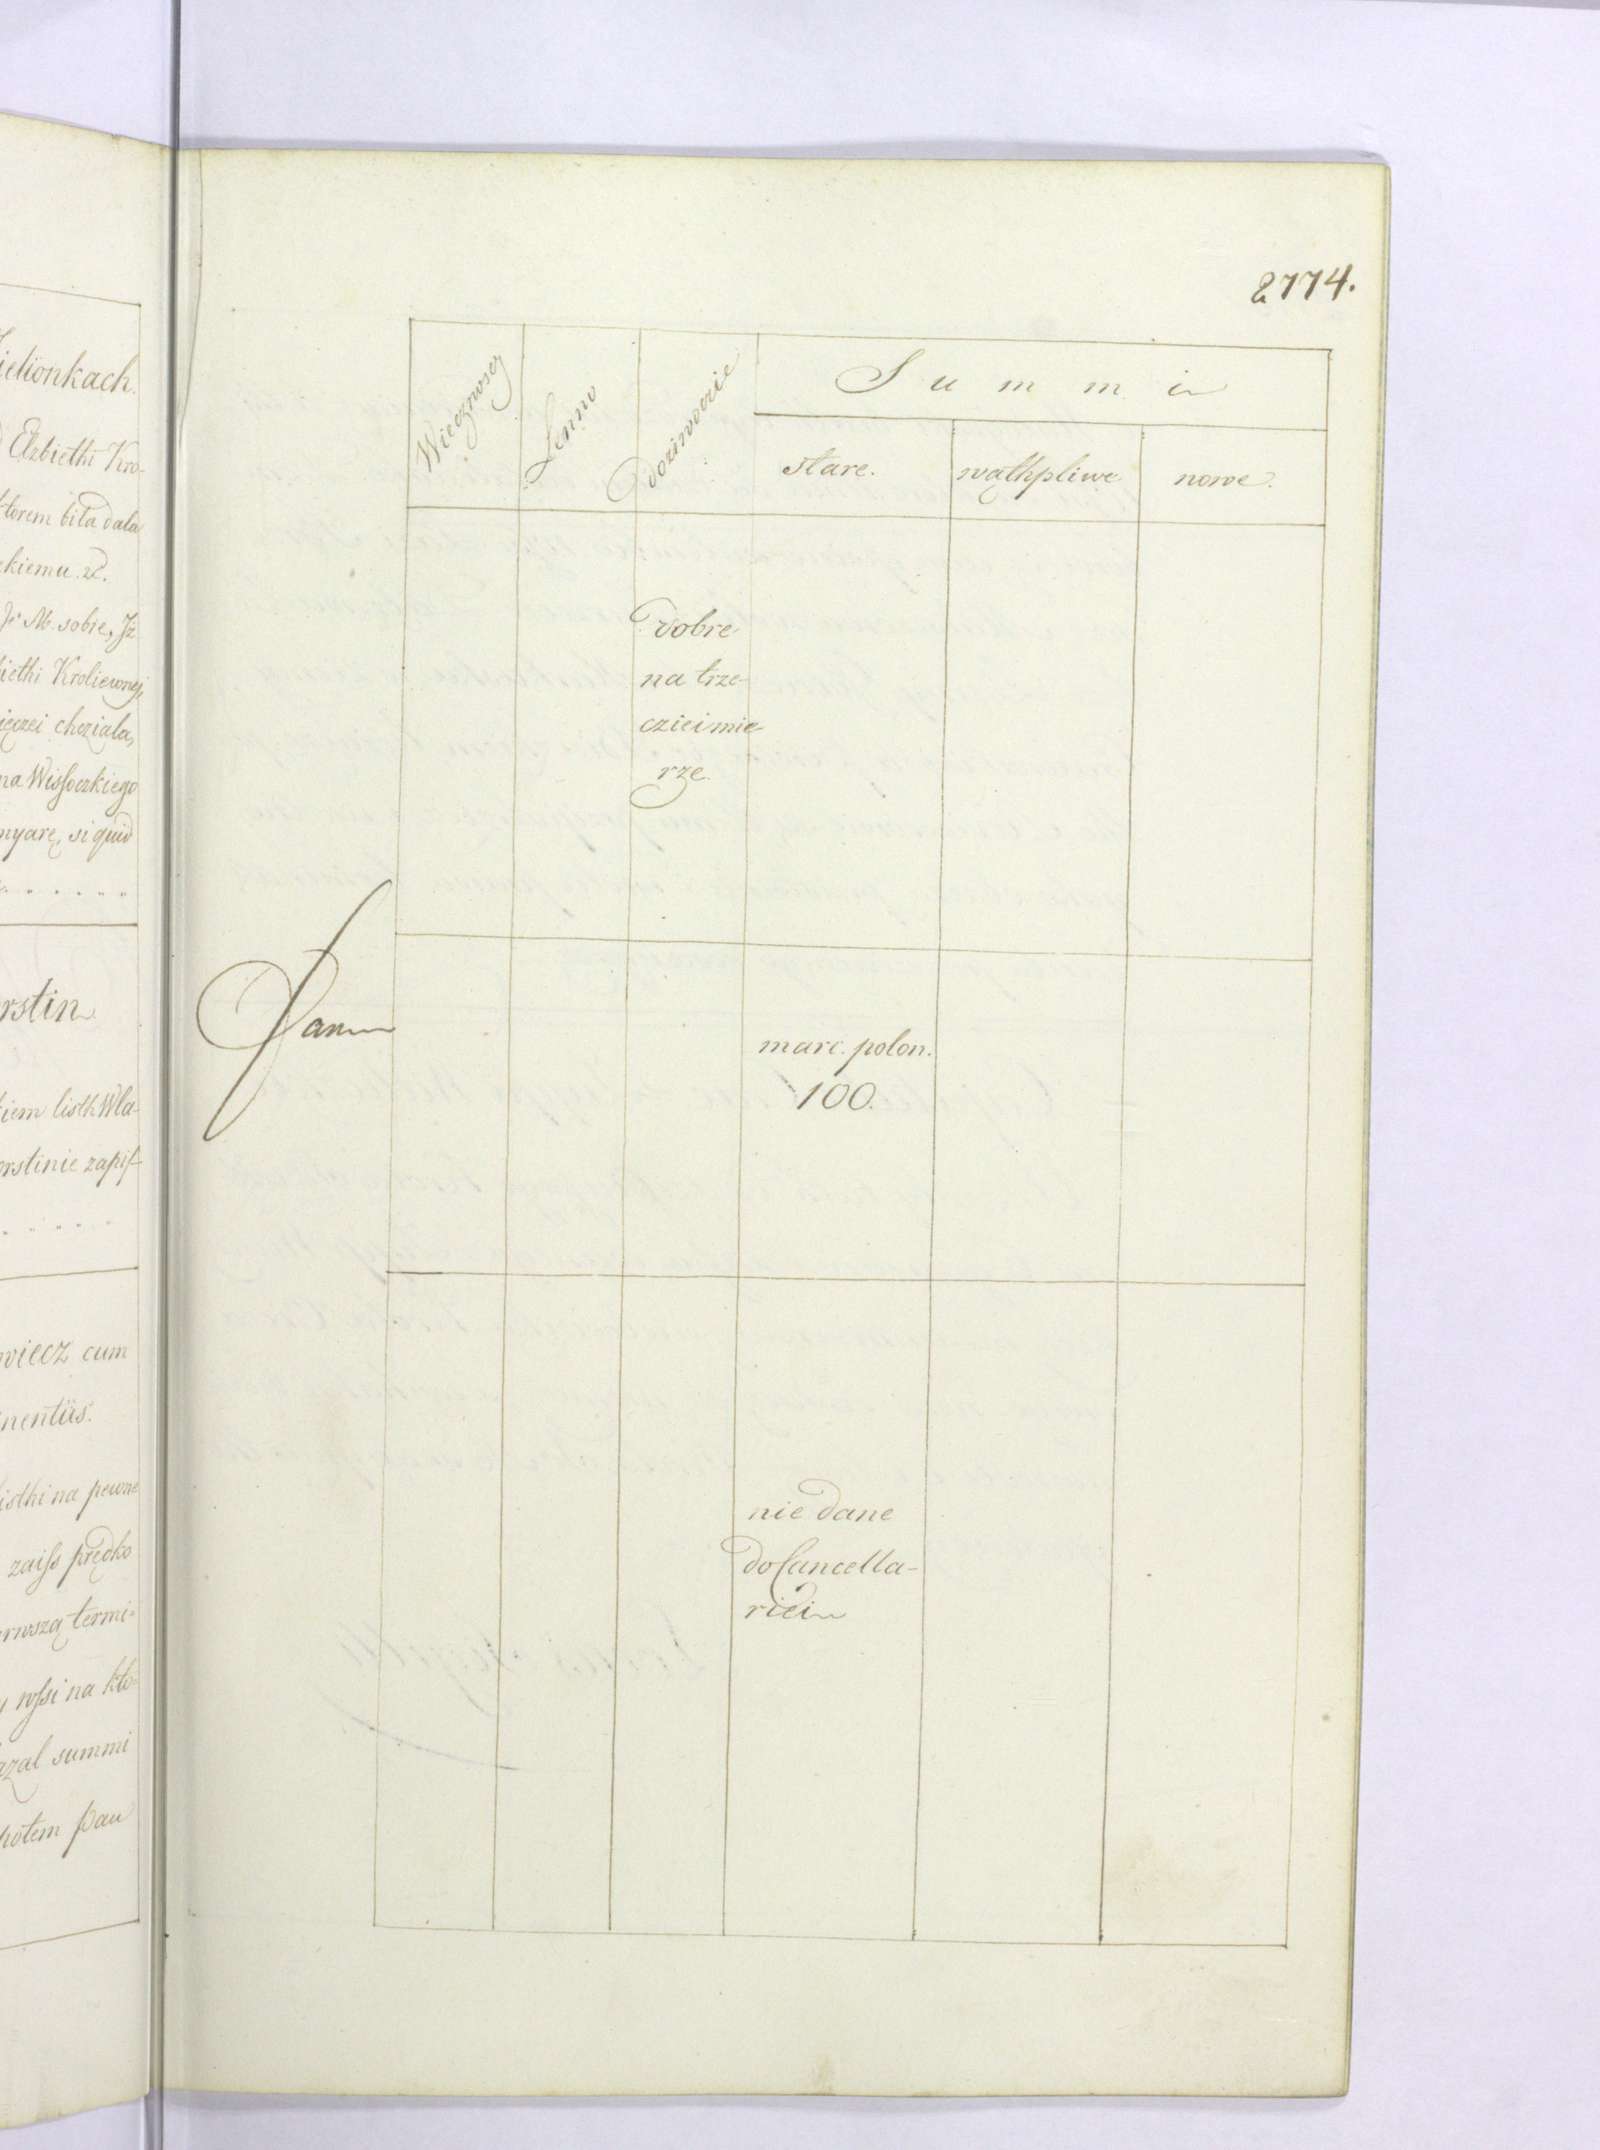 ielionkach.
Elzbiethi Kro-
ktorem bita dala
kiemu &.
Jº M. sobie, Jż
biethi Kroliewnej,
ięczei chcziala,
na Wissoczkiego
myarę, si quid
rstin
kiem listh Wla-
orstinie zapiſ-
wiecz cum
nentiis.
isthi na pewne
zaiſs prędko
erwszą termi-
wſsi na kto-
azal summi
potem pan
2774.
Wiecznoscz
Lenno
Dożiwocie
Summi
stare.
wąthpliwe
nowe.
Dobre
na trze-
cziei mie
rze.
marc. polon.
100.
nie dane
do Cancella-
riei